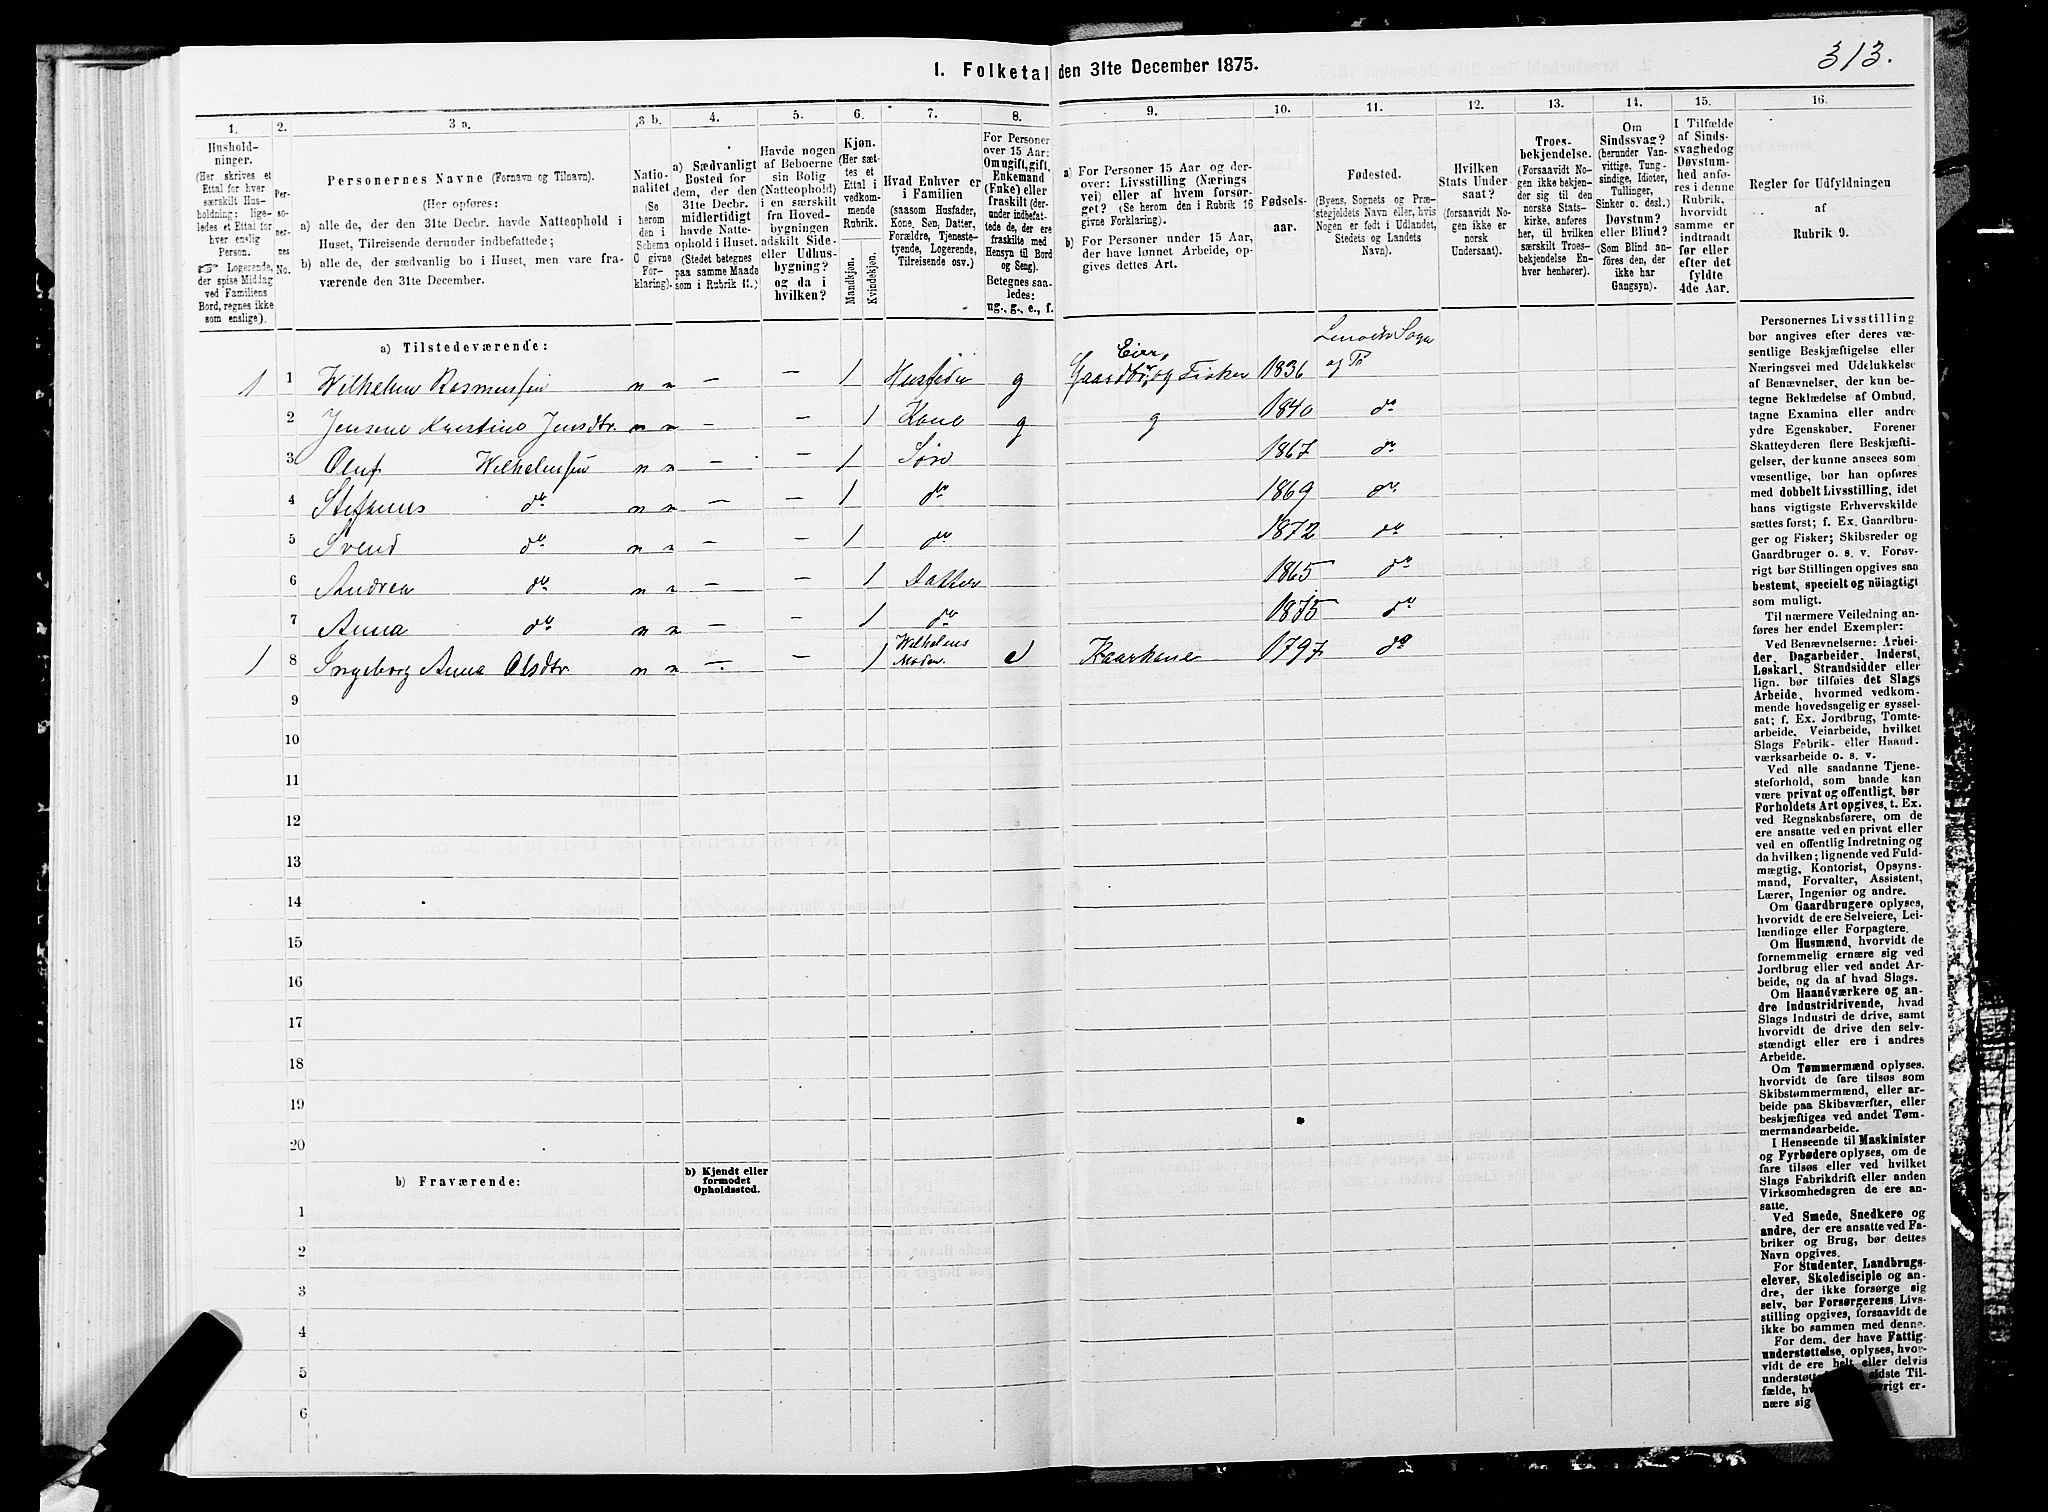 313.
1. Folketal den 31te December 1875.
1.
2.
3 a.
3 b.
4.
5.
6.
7.
8.
9.
10.
11.
12.
13.
14.
15.
16.
Husholdninger.
(Her skrives et
Ettal for hver
særskilt Husholdning;
ligeledes et Ettal for
hver enslig
Person.
☞ Logerende,
der spise Middag
ved Familiens
Bord, regnes ikke
som enslige).
Personernes
No.
Personernes Navne (Fornavn og Tilnavn).
(Her opføres:
a) alle de, der den 31te Decbr. havde Natteophold i
Huset, Tilreisende derunder indbefattede;
b) alle de, der sædvanlig bo i Huset, men vare fraværende
den 31te December.
Nationalitet
(Se
herom
den i
Schema
C givne
Forklaring).
a) Sædvanligt
Bosted for
dem, der den
31te Decbr.
midlertidigt
havde Natteophold
i Huset.
(Stedet betegnes
paa samme Maade
som i Rubrik 11.)
Havde nogen
af Beboerne
sin Bolig
(Natteophold)
i en særskilt
fra Hovedbygningen
adskilt Side-
eller Udhusbygning?
og da i
hvilken?
Kjøn.
(Her sættes
et
Ettal i
vedkommende
Rubrik.
Mandkjøn.
Kvindekjøn.
Hvad Enhver er
i Familien
(saasom Husfader,
Kone, Søn, Datter,
Forældre, Tjenestetyende,
Logerende,
Tilreisende osv.)
For Personer
over 15 Aar:
Om ugift, gift,
Enkemand
(Enke) eller
fraskilt (derunder
indbefattede
de, der ere
fraskilte med
Hensyn til Bord
og Seng).
Betegnes saaledes:
ug., g., e., f.
a) For Personer 15 Aar og derover:
Livsstilling (Næringsvei)
eller af hvem forsørget?
(Se herom den i Rubrik 16
givne Forklaring).
b) For Personer under 15 Aar,
der have lønnet Arbeide, opgives
dettes Art.
Fødselsaar.
Fødested.
(Byens, Sognets og Præstegjeldets
Navn eller, hvis
Nogen er født i Udlandet,
Stedets og Landets
Navn).
Hvilken
Stats Undersaat?
(forsaavidt Nogen
ikke er
norsk
Undersaat).
Troesbekjendelse.
(Forsaavidt Nogen
ikke bekjender
sig til den
norske Statskirke,
anføres
her, til hvilken
særskilt Troesbekjendelse
Enhver
henhører).
Om
Sindssvag?
(herunder Vanvittige,
Tungsindige,
Idioter,
Tullinger,
Sinker o. desl.)
Døvstum?
eller Blind?
(Som Blind anføres
den, der
ikke har
Gangsyn).
I Tilfælde
af Sindssvaghed
og
Døvstumhed
anføres
i denne
Rubrik,
hvorvidt
samme er
indtraadt
før eller
efter det
fyldte
4de Aar.
Regler for Udfyldningen
af
Rubrik 9.
a) Tilstedeværende:
1 1 Wilhelm Rasmussen n n — — 1 Husfader g Gaardbr, Eier, og Fisker 1836
2 Jensine Kristine Jensdtr. n n — — 1 Kone g g 1840 do
3 Oluf Wilhelmssen n n — — 1 Søn 1867 do
4 Stefanus do n n — — 1 do 1869 do
5 Svend do n n — — 1 do 1872 do
6 Andrea do n n — — 1 Datter 1865 do
7 Anna do n n — — 1 do 1875 do
1 8 Ingeborg Anna Olsdtr n n — — 1 Wilhelms Moder. e Kaarkone 1797 do
9
10
11
12
13
14
15
16
17
18
19
20
b) Fraværende:
b) Kjendt eller
formodet
Opholdssted.
1
2
3
4
5
6
Personernes Livsstilling
bør angives efter deres væsentlige
Beskjæftigelse eller
Næringsvei med Udelukkelse
af Benævnelser, der kun betegne
Beklædelse af Ombud,
tagne Examina eller andre
ydre Egenskaber. Forener
Skatteyderen flere Beskjæftigelser,
der kunne ansees som
væsentlige, bør han opføres
med dobbelt Livsstilling, idet
hans vigtigste Erhvervskilde
sættes først; f. Ex. Gaardbruger
og Fisker; Skibsreder og
Gaardbruger o. s. v. Forøvrigt
bør Stillingen opgives saa
bestemt, specielt og nöiagtigt
som muligt.
Til nærmere Veiledning anføres
her endel Exempler:
Ved Benævnelserne: Arbeider,
Dagarbeider, Inderst,
Løskarl, Strandsidder eller
lign. bør tilføies det Slags
Arbeide, hvormed vedkommende
hovedsagelig er sysselsat;
f. Ex. Jordbrug, Tomtearbeide,
Veiarbeide, hvilket
Slags Fabrik- eller Haandværksarbeide
o. s. v.
Ved alle saadanne Tjenesteforhold,
som baade kan
være privat og offentligt, bør
Forholdets Art opgives, t. Ex.
ved Regnskabsførere, om de
ere ansatte ved en privat eller
ved en offentlig Indretning og
da hvilken; lignende ved Fuldmægtig,
Kontorist, Opsynsmand,
Forvalter, Assistent,
Lærer, Ingeniør og andre.
Om Gaardbrugere oplyses,
hvorvidt de ere Selveiere, Leilændinge
eller Forpagtere.
Om Husmænd, hvorvidt de
fornemmelig ernære sig ved
Jordbrug eller ved andet Arbeide,
og da af hvad Slags.
Om Haandværkere og andre
Industridrivende, hvad
Slags Industri de drive, samt
hvorvidt de drive den selvstændigt
eller ere i andres
Arbeide.
Om Tømmermænd oplyses.
hvorvidt de fare tilsøs som
Skibstømmermænd, eller arbeide
paa Skibsværfter, eller
beskjæftiges ved andet Tømmermandsarbeide.
I Henseende til Maskinister
og Fyrbødere oplyses, om de
fare tilsøs eller ved hvilket
Slags Fabrikdrift eller anden
Virksomhedsgren de ere ansatte.
Ved Smede, Snedkere og
andre, der ere ansatte ved Fabriker
og Brug, bør dettes
Navn opgives.
For Studenter, Landbrugselever,
Skoledisciple og andre,
der ikke forsørge sig
selv, bør Forsørgerens Livsstilling
opgives, forsaavidt de
ikke bo sammen med denne.
For dem, der have Fattigunderstøttelse,
oplyses, hvorvidt
de ere helt eller delvis